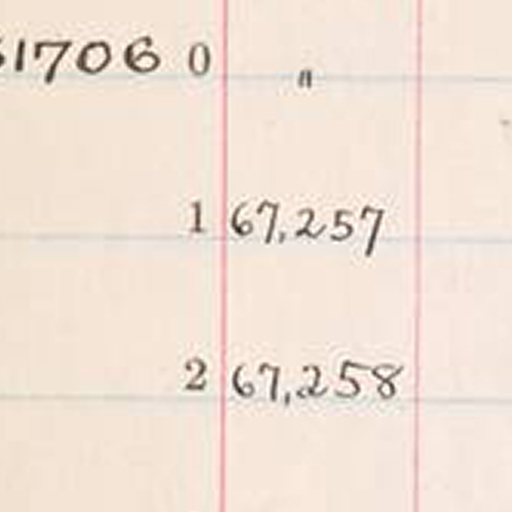 1706 0 "
1 67,257
2 67,258